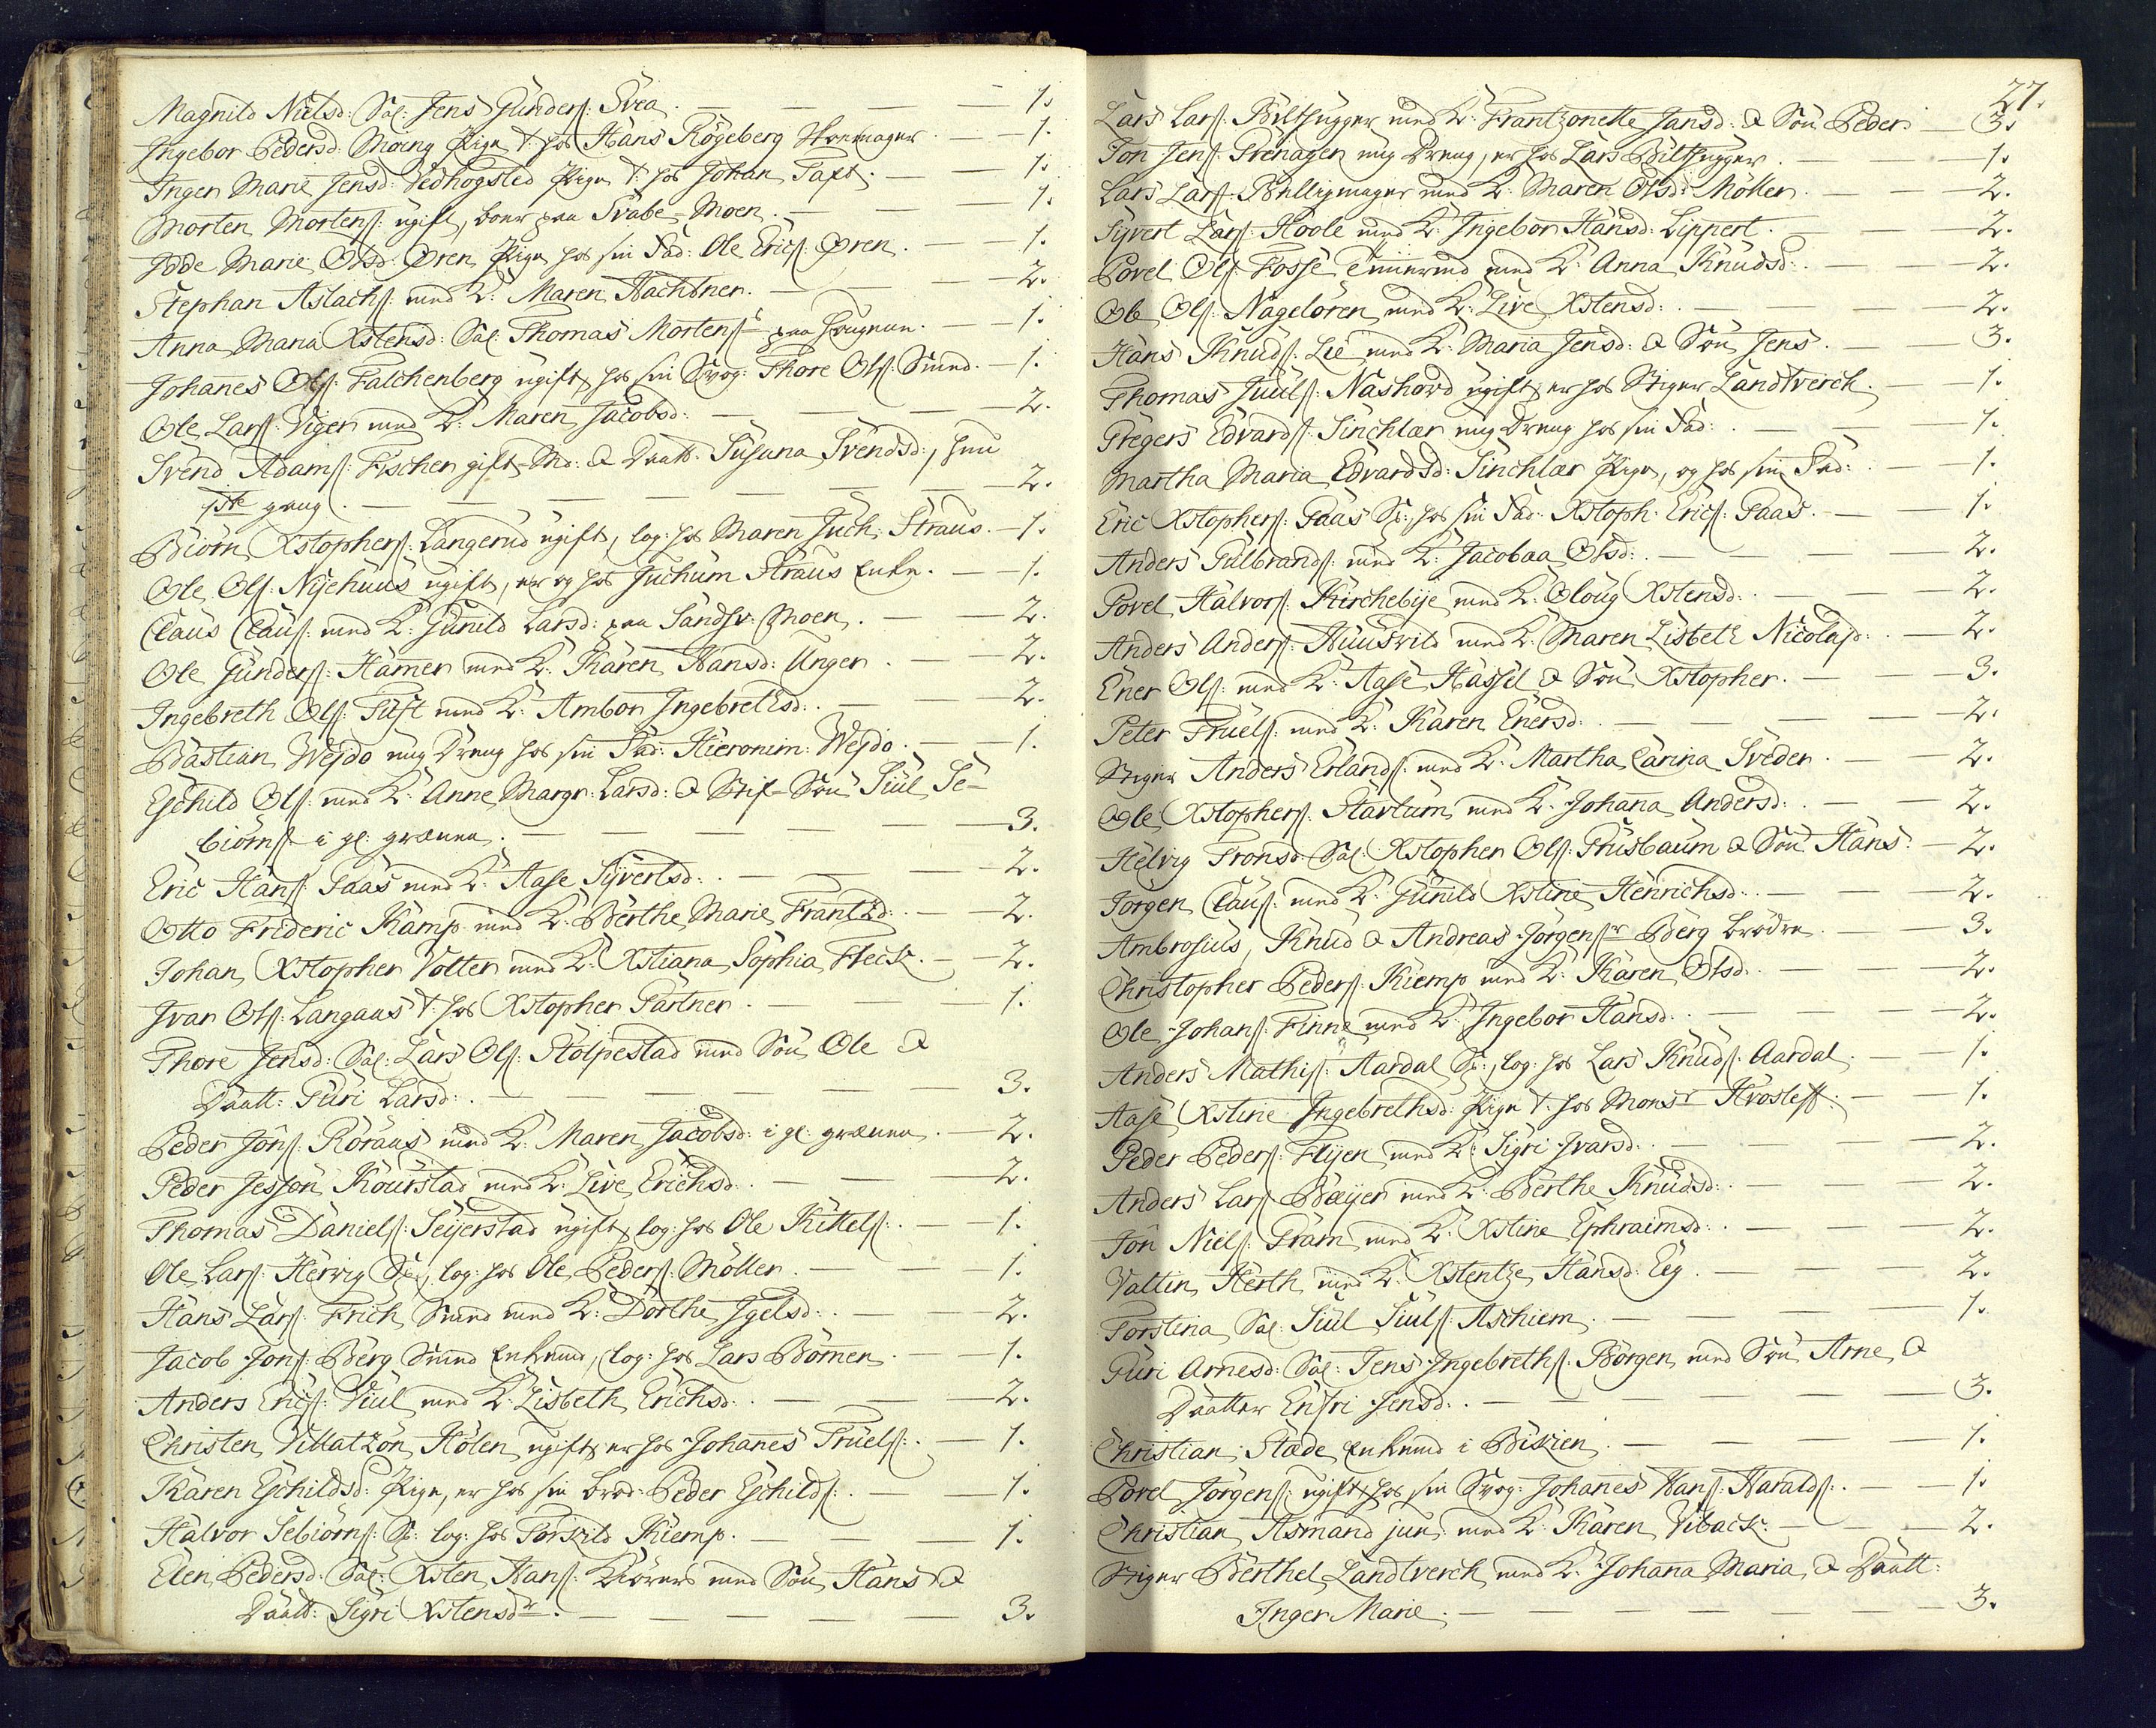 Magnild Nielsd: Sal: Jens Gunders: Svea. — 1.
Ingebor Pedersd: Moing Pige t. hos Hans Rögeberg — 1.
Inger Marie Jensd: Vedhogsled Pige t. hos Johan Taxt. — 1.
Morten Mortens: ugift, boer paa Svabe-Moen. — 1.
Marie Olsd: Øren Pige hos sin Fad: Ole Erics: Øren. — 1.
Stephan Aslachs: med K: Maren Hachtner. — 2.
Anna Maria Xstensd: Sal: Thomas Mortens: paa — 1.
Johanes Ols: Falchenberg ugift, hos sin Svog: Thore Ols: Smed. — 1.
Ole Lars: Viger med K: Maren Jacobsd: — 2.
Svend Adams: Fischer gift-Md: & Daatt: Susana Svendsd:, hun
1ste gang. — 2.
Biörn Xstophers: Langerud ugift, log: hos Maren Juch: Straus. — 1.
Ole Ols: Nyehuus ugift, er og hos Juchum Straus Enke. — 1.
Claus Claus: med K: Gunild Larsd: paa Sandsv: Moen. — 2.
Ole Gunders: Hamer med K: Karen Hansd: Unger. — 2.
Ingebreth Ols: Tuft med K: Ambor Ingebrethsd: — 2.
Bastian Wejdo ung Dreng hos sin Fad: Hieronim: Wejdo. — 1.
Eschild Ols: med K: Anne Margr: Larsd: & Stif-Sön Juul Se-
biörns: i gl: grænna. — 3.
Eric Hans: Gaas med K: Aase Syvertsd: — 2.
Otto Frideric Kamp med K: Berthe Marie Frantzd: — 2.
Johan Xstopher Volter med K: Xstiana Sophia Fleck. — 2.
Ivar Ols: Langaas t. hos Xstopher Gartner. — 1.
Thore Jensd: Sal: Lars Ols: Stolpestad med Sön Ole &
Daatt: Guri Larsd: — 3.
Peder Jöns: Röraas med K: Maren Jacobsd: i gl: grænna. — 2.
Peder Jesson Kourstad med K: Live Erichsd: — 2.
Thomas Daniels: Seijerstad ugift, log: hos Ole Kittels: — 1.
Ole Lars: Herwig Sv:, log: hos Ole Peders: Möller. — 1.
Hans Lars: Frich Smed med K: Dorthe Igelsd: — 2.
Jacob Jons: Berg Smed Enkemd, log: hos Lars Bömer. — 1.
Anders Erics: Viul med K: Lisbeth Erichsd: — 2.
Christen Villatzön Hölen ugift, er hos Johanes Truels: — 1.
Karen Eschildsd: Pige, er hos sin brod: Peder Eschilds: — 1.
Halvor Sebiörns: Sv: log: hos Torkild Kiemp. — 1.
Elen Pedersd: Sal: Xsten Hans: Kiörer med Sön Hans &
Daatt: Sigri Xstensdr. — 3.
27.
Lars Lars: Bilthugger med K: Frantzonette Jansd: & Sön Peder. — 3.
Ton Jens: Grenager ung Dreng, er hos Lars Bilthugger. — 1.
Lars Lars: Bælligmager med K: Maren Olsd: Möller. — 2.
Syvert Lars: Hoole med K: Ingebor Hansd: Lippert. — 2.
Povel Ols: Fosse Tömmermd med K: Anna Knudsd: — 2.
Ole Ols: Nagelören med K: Live Xstensd: — 2.
Hans Knuds: Lie med K: Maria Jensd: & Sön Jens. — 3.
Thomas Juuls: Nashovd ugift, er hos Stiger Landtverch. — 1.
Gregers Edvards: Sinchlar ung Dreng hos sin Fad: — 1.
Martha Maria Edvardsd: Sinchlar Pige, og hos sin Fad: — 1.
Eric Xstophers: Gaas Sv:, hos sin Fad: Xstoph: Erics: Gaas. — 1.
Anders Gulbrands: med K: Jacobaa Olsd: — 2.
Povel Halvors: Kirchebye med K: Oloug Xstensd: — 2.
Anders Anders: Huusvild med K: Maren Lisbeth Nicolajs: — 2.
Ener Ols: med K: Aase Hassel & Sön Xstopher. — 3.
Peter Truels: med K: Karen Enersd: — 2.
Stiger Anders Erlands: med K: Martha Carina Sveder. — 2.
Ole Xstophers: Startum med K: Johana Andersd: — 2.
Helvig Tronsd: Sal: Xstopher Ols: Grusbaum & Sön Hans. — 2.
Jörgen Claus: med K: Gunild Xstine Henrichsd: — 2.
Ambrosius, Knud & Andreas Jörgensr Berg brödre. — 3.
Christopher Peders: Kiemp med K: Karen Olsd: — 2.
Ole Johans: Finne med K: Ingebor Hansd: — 2.
Anders Mathis: Aardal Sv:, log: hos Lars Knuds: Aardal. — 1.
Aase Xstine Ingebrethsd: Pige t. hos Monsr Hvosleff: — 1.
Peder Peders: Flyen med K: Sigri Ivarsd: — 2.
Anders Lars: Bæyer med K: Berthe Knudsd: — 2.
Jon Niels: Gram med K: Xstine Ephraimsd: — 2.
Valtin Herth med K: Xstentze Hansd: Eeg. — 2.
Torstina Sal: Juul Juuls: Aschiem. — 1.
Guri Arnesd: Sal: Jens Ingebreths: Borgen med Sön Arne &
Daatter Ensri Jensd: — 3.
Christian Stade Enkemd i Bikien. — 1.
Povel Jörgens: ugift, hos sin Svog: Johanes Hans: Haralds: — 1.
Christian Asmand jun: med K: Karen Viback. — 2.
Stiger Berthel Landtverch med K: Johana Maria, & Daatt:
Inger Marie. — 3.